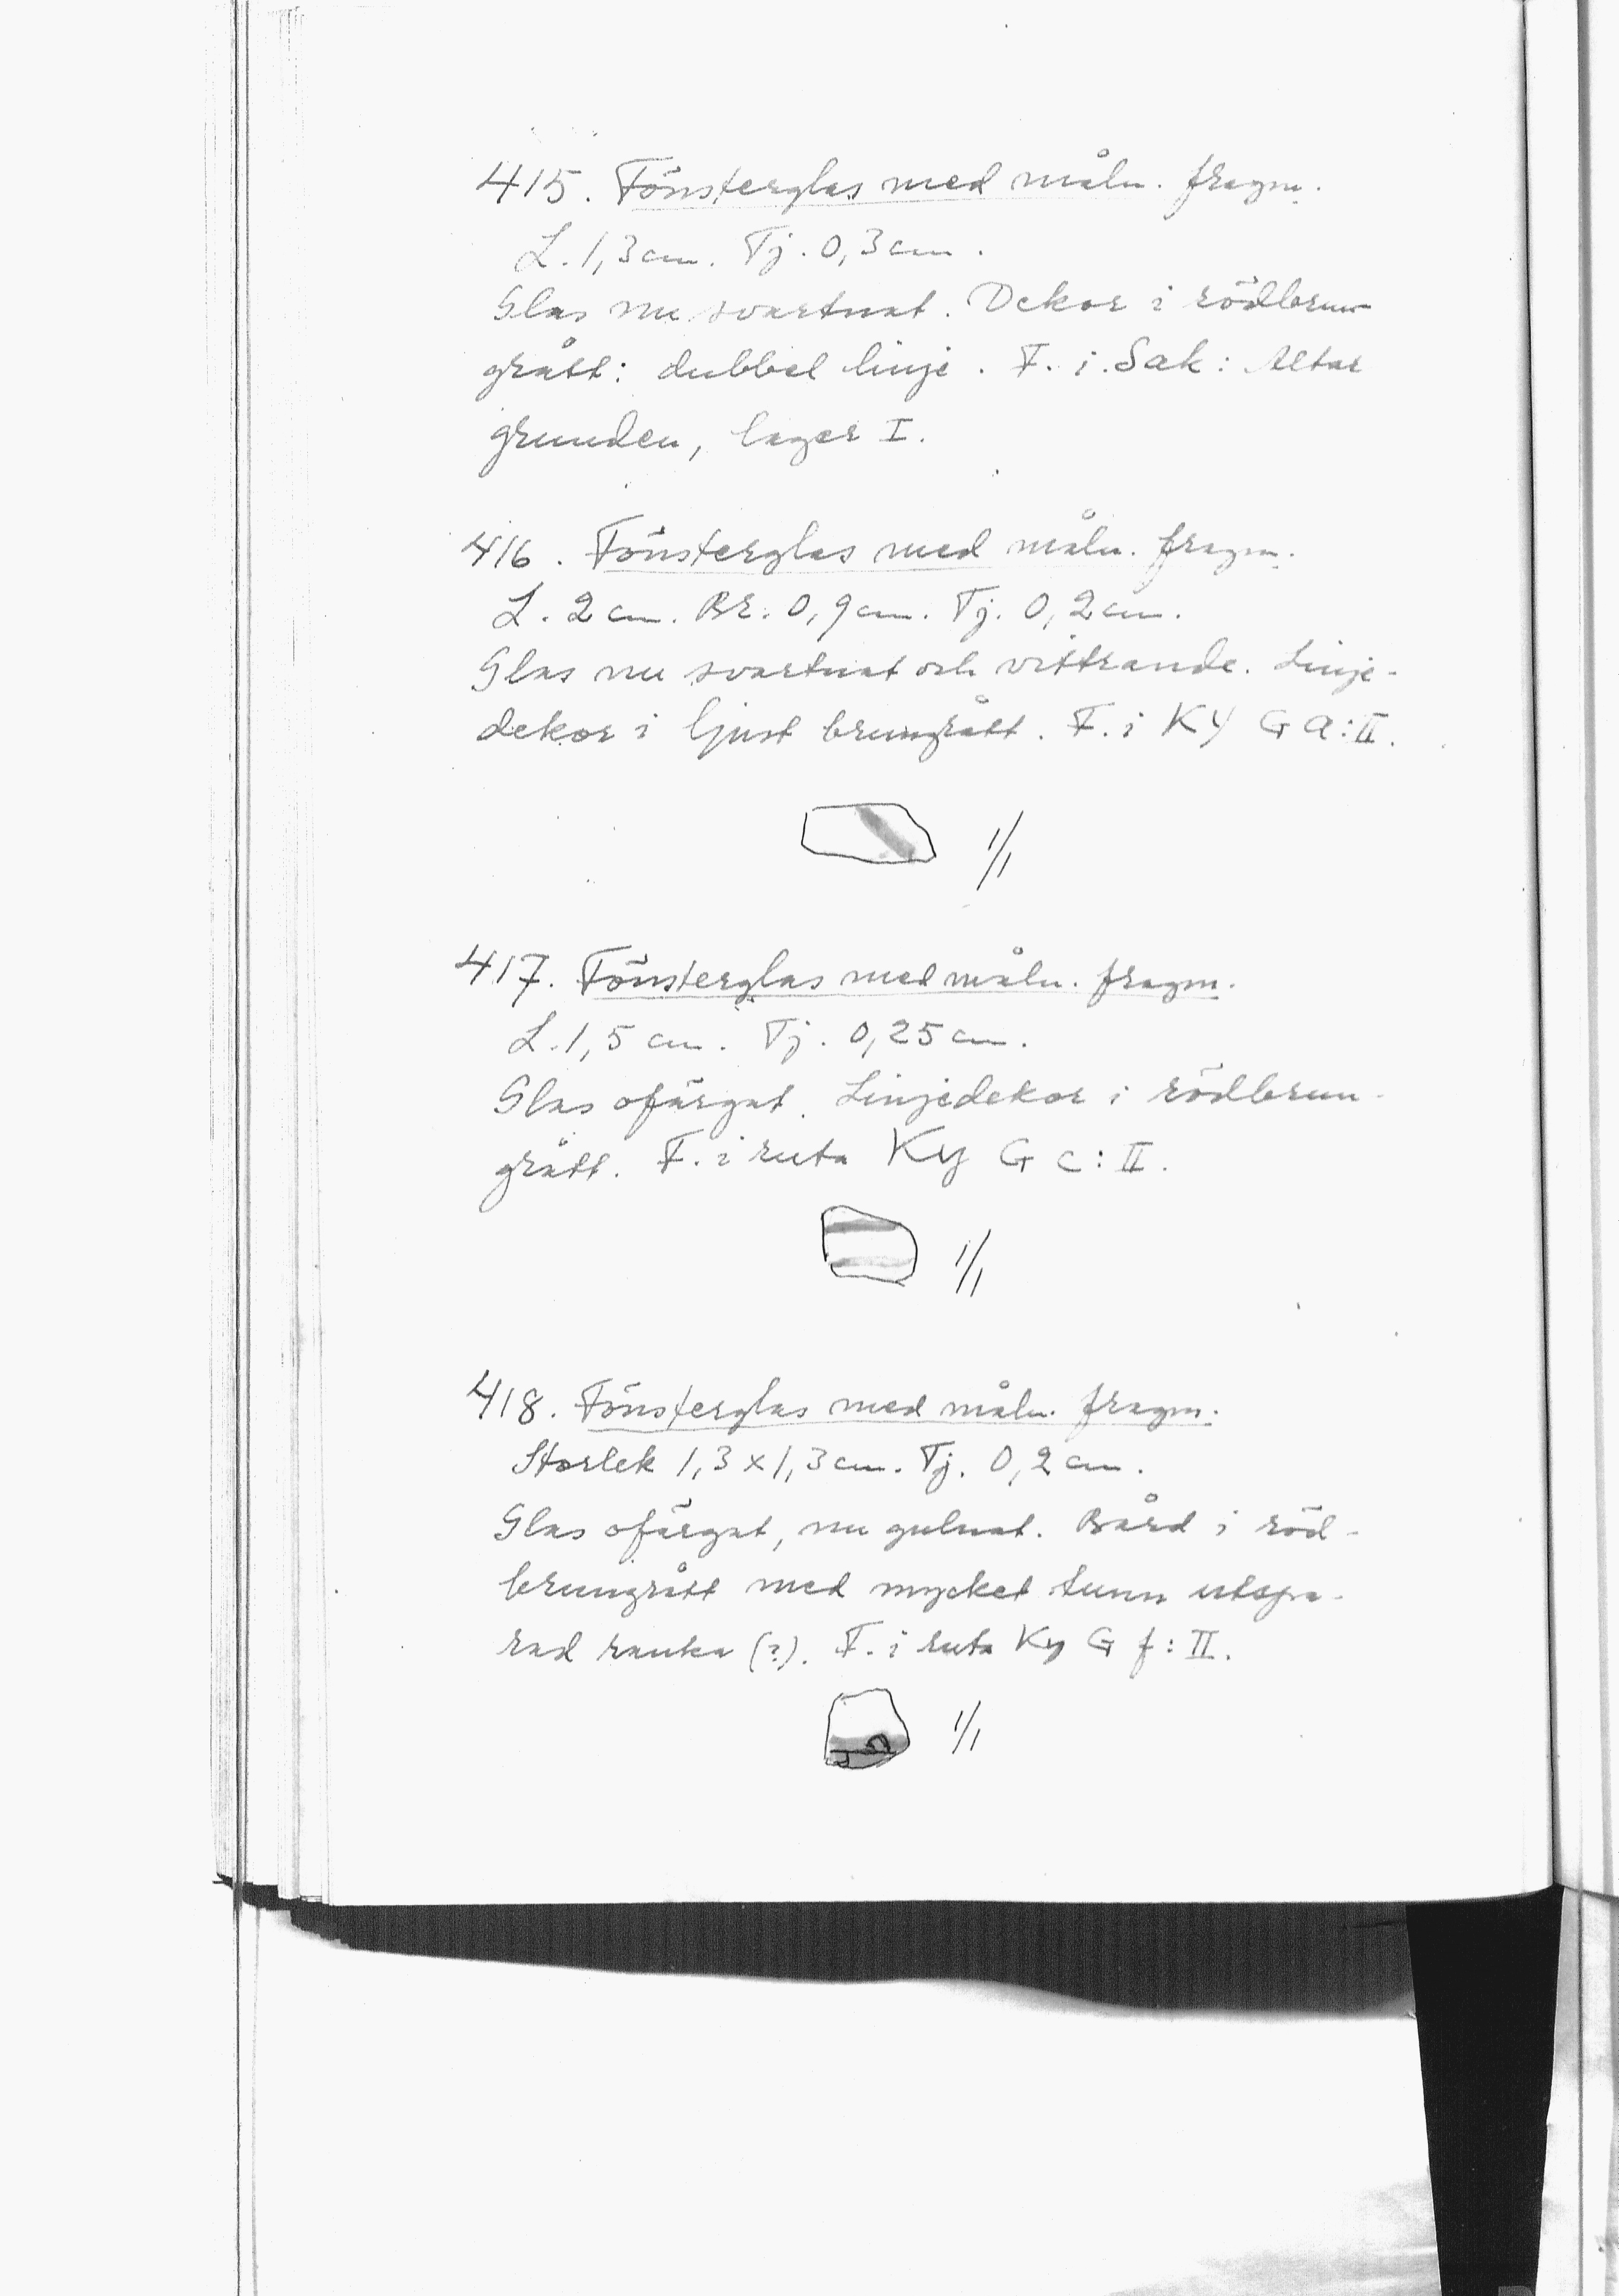 415. Fönsterglas med måln. fragm.
L. 1,3 cm. Tj. 0,3 cm.
Glas nu svartnat. Dekor i rödbrun
grått: dubbel linje. F. i Sak: Altar
grunden, lager I.
416. Fönsterglas med måln. fragm.
L. 2 cm. Br. 0,9 cm. Tj. 0,2 cm.
Glas nu svartnat och vittrande. Linje-
dekor i ljust brungrått. F. i KY G a: II.
1/1
417. Fönsterglas med måln. fragm.
L. 1,5 cm. Tj. 0,25 cm.
Glas ofärgat. Linjedekor i rödbrun-
grått. F. i ruta Ky G c: II.
1/1
418. Fönsterglas med måln. fragm.
Storlek 1,3 x 1,3 cm. Tj. 0,2 cm.
Glas ofärgat, nu gulnat. Bård i röd-
brungrått med mycket tunn utspa-
rad ranka (?). F. i ruta Ky G f: II.
1/1